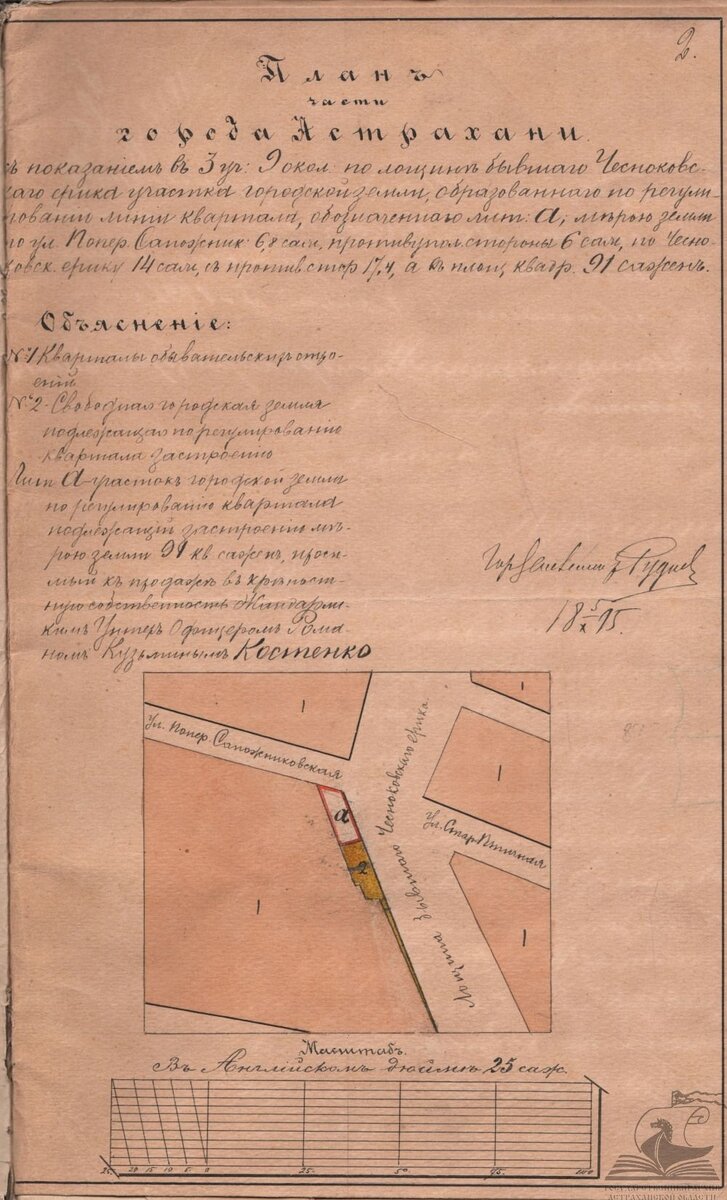 2.
Планъ
части
города Астрахани
съ показаніемъ въ 3 уч: 9 окол: по лощинѣ бывшаго Чесноковс-
каго ерика участка городской земли, образованнаго по регули
рованіи линіи квартала, обозначеннаго лит: А, мѣрою земли
по ул. Попер. Сапожник: 6,8 саж, противупол стороны 6 саж, по Чесно-
ковск. ерику 14 саж, съ против стор 17,4, а въ площ квадр. 91 сажень.
Объясненіе:
№ 1 Кварталы обывательскихъ стро-
еній
№ 2 - Свободная городская земля
подлежащая по регулированію
квартала застроенію
Лит А - участокъ городской земли
по регулированію квартала
подлежащій застроенію мѣ-
рою земли 91 кв сажен, проси-
мый къ продажѣ въ крѣпост-
ную собственность Жандармс-
кимъ Унтеръ Офицеромъ Рома-
номъ Кузьминымъ Костенко
18 5/X 95.
1
1
Ул. Попер. Сапожниковская
Лощина бывшаго Чесноковскаго ерика
1
а
Ул. Стар. Птичная
2
1
1
Масштабъ.
Въ Англійскомъ дюймѣ 25 саж.
25 20 15 10 5 0 25 50 75 100
ГОСУДАРСТВЕННЫЙ АРХИВ
АСТРАХАНСКОЙ ОБЛАСТИ